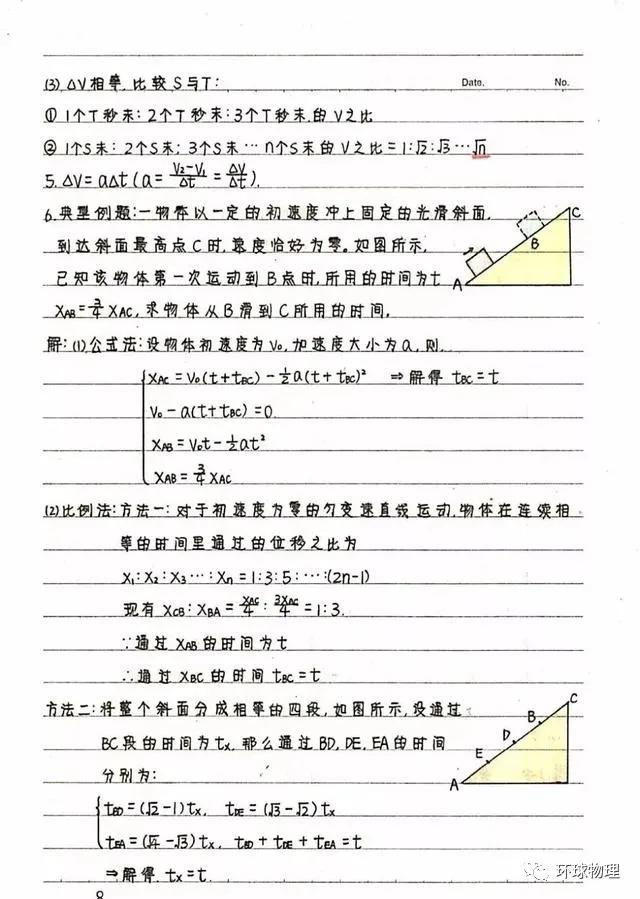 Date. No.
(3). ΔV相等, 比较S与T:
① 1个T秒末: 2个T秒末: 3个T秒末.的V之比
② 1个S末: 2个S末: 3个S末…n个S末的V之比=1:√2:√3…√n
5. ΔV=aΔt(a=(V₂-V₁)/Δt=ΔV/Δt).
6.典型例题:一物体以一定的初速度冲上固定的光滑斜面,
到达斜面最高点C时,速度恰好为零。如图所示,
已知该物体第一次运动到B点时,所用的时间为t
XAB=3/4 XAC,求物体从B滑到C所用的时间.
A B C
解:(1)公式法:设物体初速度为V₀,加速度大小为a,则.
XAC=V₀(t+tBC)-½a(t+tBC)² ⇒解得 tBC=t
V₀-a(t+tBC)=0
XAB=V₀t-½at²
XAB=3/4 XAC
(2)比例法:方法一:对于初速度为零的匀变速直线运动,物体在连续相
等的时间里通过的位移之比为
X₁:X₂:X₃…:Xn=1:3:5:…:(2n-1)
现有 XCB:XBA=XAC/4:3XAC/4=1:3.
∵通过XAB的时间为t
∴通过XBC的时间tBC=t
方法二:将整个斜面分成相等的四段,如图所示,设通过
BC段的时间为tx,那么通过BD,DE,EA的时间
分别为:
A E D B C
tBD=(√2-1)tx, tDE=(√3-√2)tx
tEA=(√4-√3)tx, tBD+tDE+tEA=t
⇒解得.tx=t.
环球物理
8